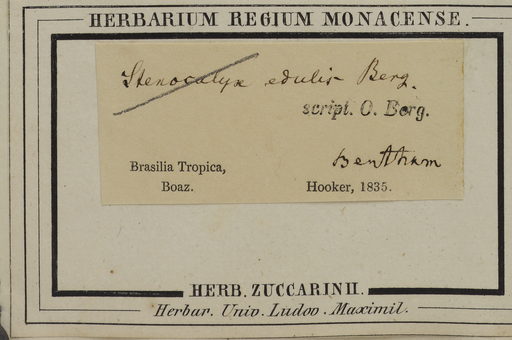 HERBARIUM REGIUM MONACENSE.
Stenocalyx edulis Berg.
script. O. Berg.
Bentham
Brasilia Tropica,
Boaz.
Hooker, 1835.
HERB. ZUCCARINII.
Herbar. Univ. Ludov. Maximil.